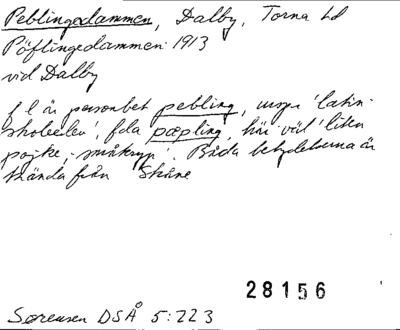 Peblingedammen, Dalby, Torna hd
Pöflingedammen 1913
vid Dalby
f l är personbet pebling, urspr 'latin-
skoleelev', fda pæpling, här väl 'liten
pojke, småkryp'. Båda betydelserna är
kända från Skåne
28156
Sørensen DSÅ 5:223